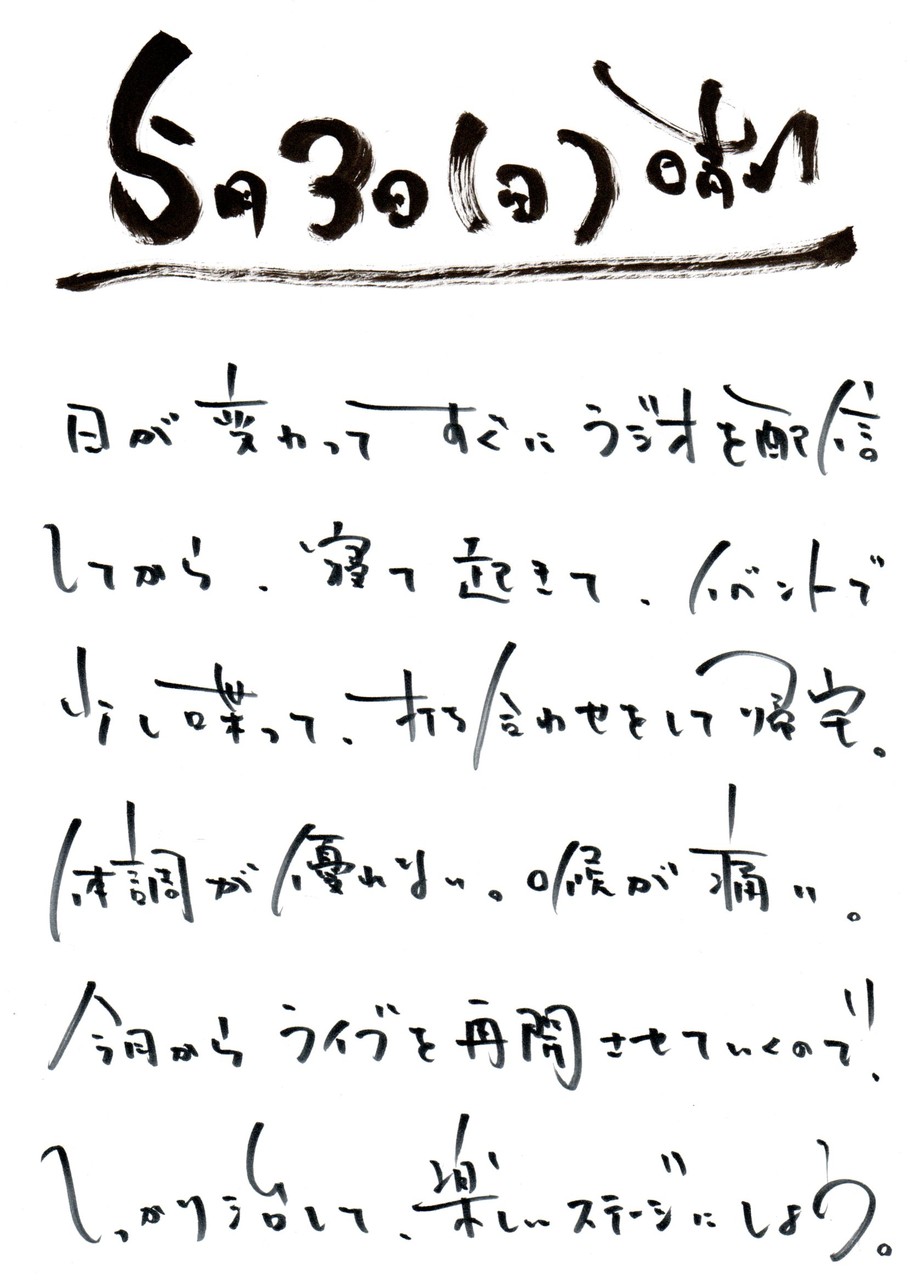 5月3日(日)晴れ
日が変わってすぐにラジオを配信
してから、寝て起きて、イベントで
少し喋って、打ち合わせをして帰宅。
体調が優れない。喉が痛い。
今月からライブを再開させていくので、
しっかり治して、楽しいステージにしよう。